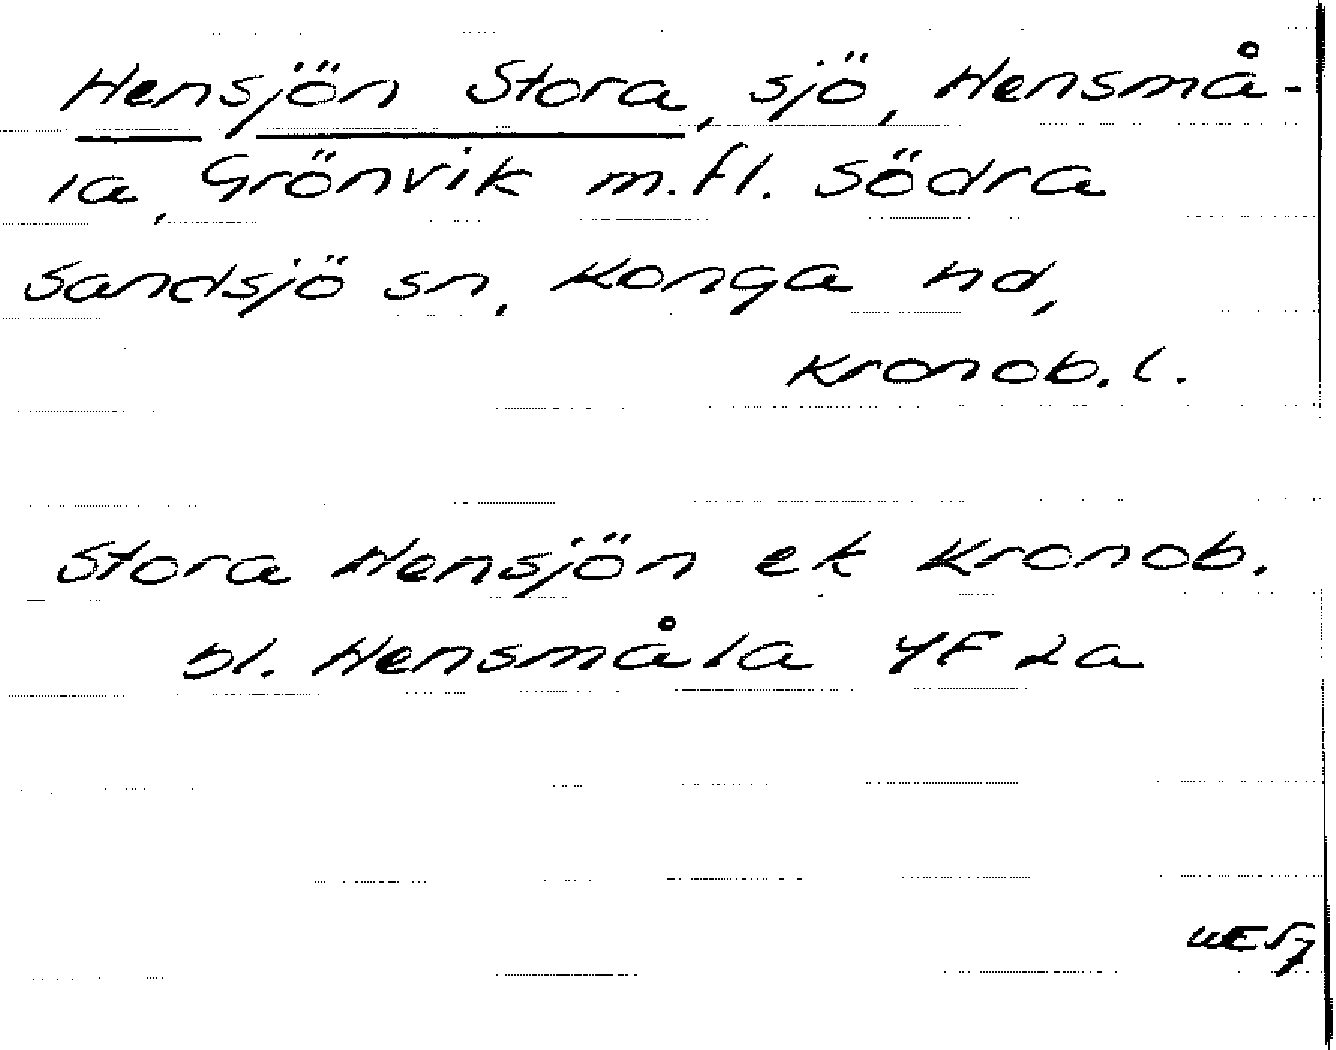 Hensjön Stora, sjö, Hensmå-
la, Grönvik m.fl. Södra
Sandsjö sn, Konga hd,
Kronob. l.
Stora Hensjön ek Kronob.
bl. Hensmåla 4F 2a